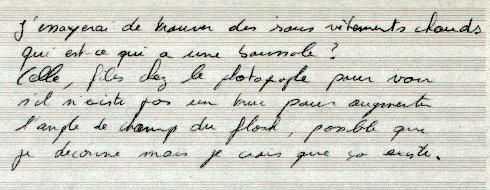 J'essayerai de trouver des sous vêtements chauds
qui est-ce qui a une boussole ?
Celle, files chez le photographe pour voir
s'il n'existe pas un truc pour augmenter
l'angle de champ du flash, possible que
je déconne mais je crois que ça existe.